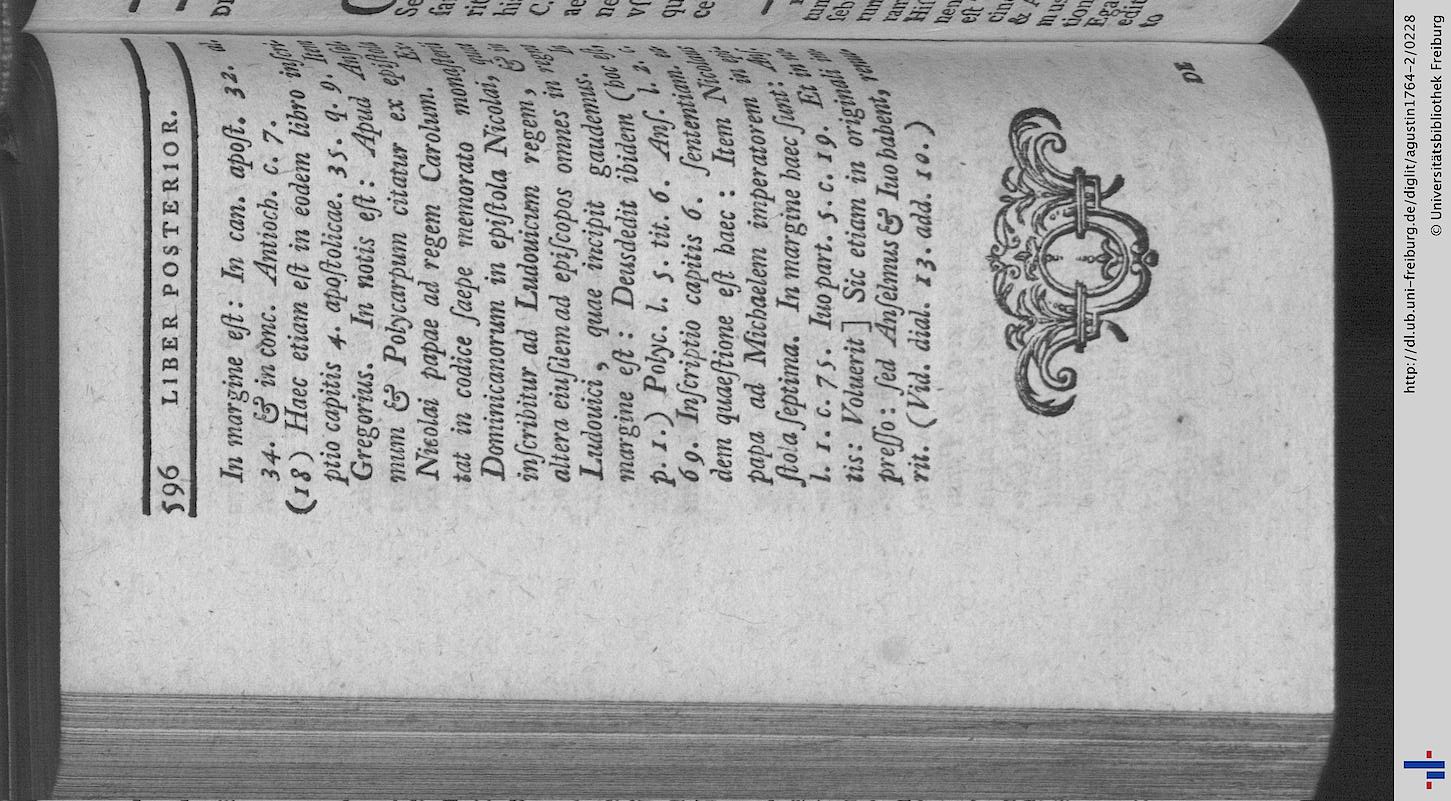 596 LIBER POSTERIOR.
In margine eſt: In can. apoſt. 32.
34. & in conc. Antioch. c. 7.
(18) Haec etiam eſt in eodem libro inſcri
ptio capitis 4. apoſtolicae. 35. q. 9. Item
Gregorius. In notis eſt: Apud Anſel
mum & Polycarpum citatur ex epiſtola
Nicolai papae ad regem Carolum. Ex
tat in codice ſaepe memorato monaſterii
Dominicanorum in epiſtola Nicolai, quae
inſcribitur ad Ludouicum regem, & in
altera eiuſdem ad epiſcopos omnes in regno
Ludouici, quae incipit gaudemus.
margine eſt: Deusdedit ibidem (hoc eſt,
p. 1.) Polyc. l. 5. tit. 6. Anſ. l. 2. c.
69. Inſcriptio capitis 6. ſententiam.
dem quaeſtione eſt haec: Item Nicolaus
papa ad Michaelem imperatorem in
ſtola ſeptima. In margine haec ſunt:
l. 1. c. 75. Iuo part. 5. c. 19. Et in
tis: Voluerit] Sic etiam in originali
preſſo: ſed Anſelmus & Iuo habent,
rit. (Vid. dial. 13. add. 10.)
DE
http://dl.ub.uni-freiburg.de/diglit/agustin1764-2/0228
© Universitätsbibliothek Freiburg